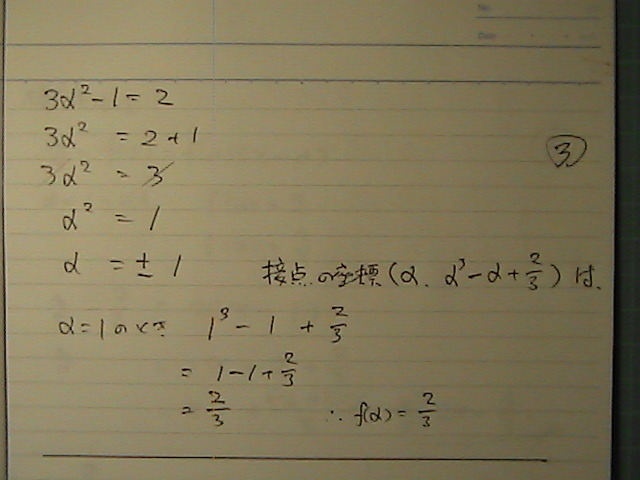 No.
Date
3α²-1=2
3α² = 2+1
③
3α² = 3
α² = 1
α = ± 1
接点の座標(α、α³-α+2/3)は、
α=1のとき 1³ - 1 + 2/3
= 1-1+2/3
= 2/3 ∴ f(α) = 2/3